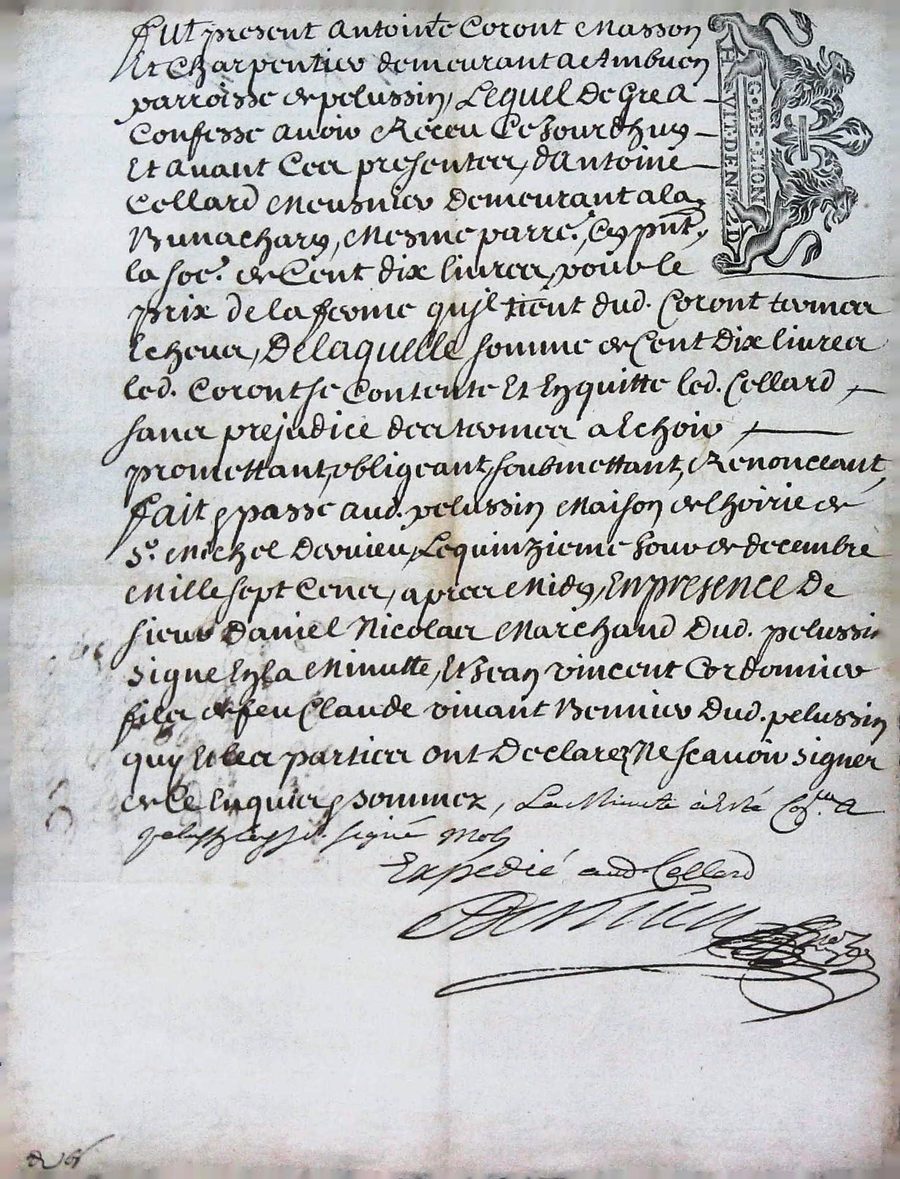 fut present Antoinne Coront Masson
Et Charpentier demeurant a Ambuen
parroisse de pelussin, Lequel De Gre a
Confesse avoir Receu Ce Jourdhuy
Et avant Ces presentes, dAntoine
Cellard Meusnier demeurant a la
Bunachary, Mesme parre., Cy pnt,
la soe. de Cent dix livres pour le
prix de la ferme qujl tient dud. Coront termes
lcheus, De laquelle somme de Cent Dix livres
led. Coront se Contente Et En quitte led. Cellard
sans prejudice des termes a lchoir
promettant, obligeant, soubmettant, Renonceant,
fait & passe aud. pelussin Maison de lhoirie de
Sr. Michel Dervieu, Le quinzieme Jour de decembre
Mille sept Cens, apres Midy, En presence De
sieur Daniel Nicolas Marchand Dud. pelussin
signe En la Minutte, Et Jean vincent Cordonnier
fils de feu Claude vivant Bennier Dud. pelussin
quy Et les parties ont Declarez Ne scavoir signer
de Ce Enquis & sommez, La Minute a Esté a
signé
Expedié aud Cellard
Dervieu
G. DE LION
H. VIT. DEN. 2D